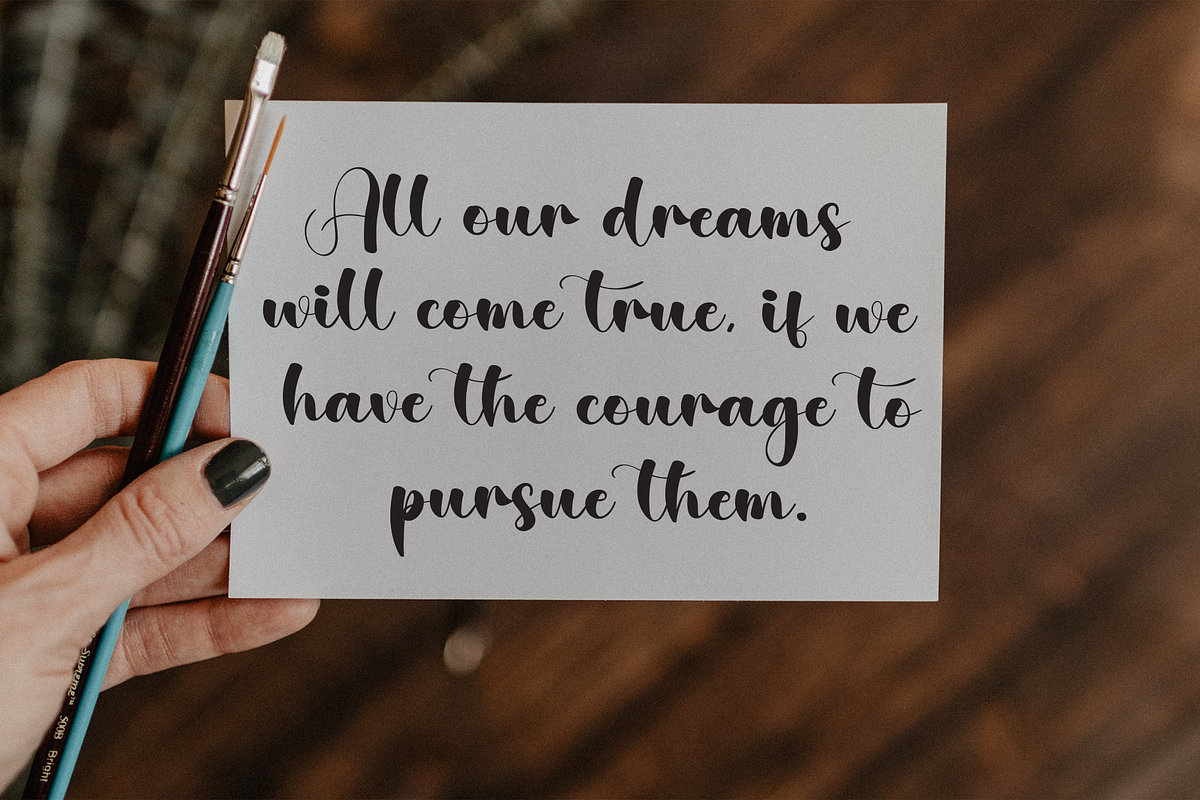 All our dreams
will come true, if we
have the courage to
pursue them.
Supreme™ 500B Bright